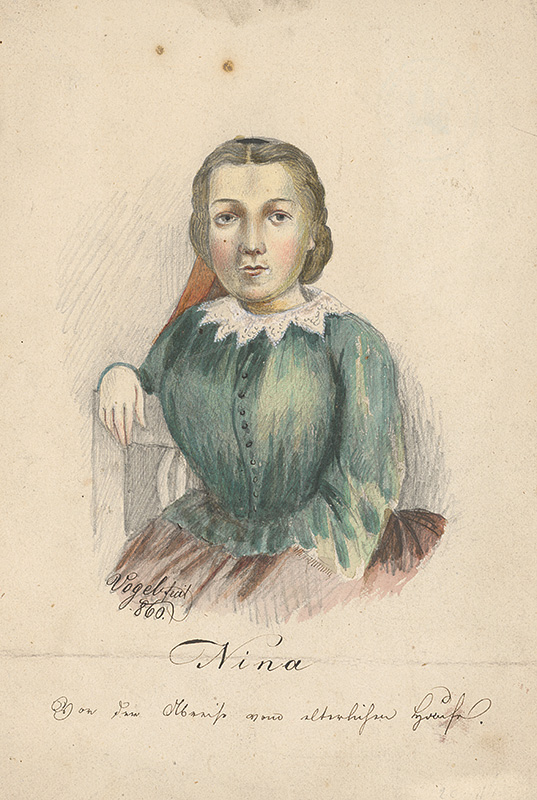 Vogel fecit
860.
Nina
Vor der Abreise vom elterlichen Hause.